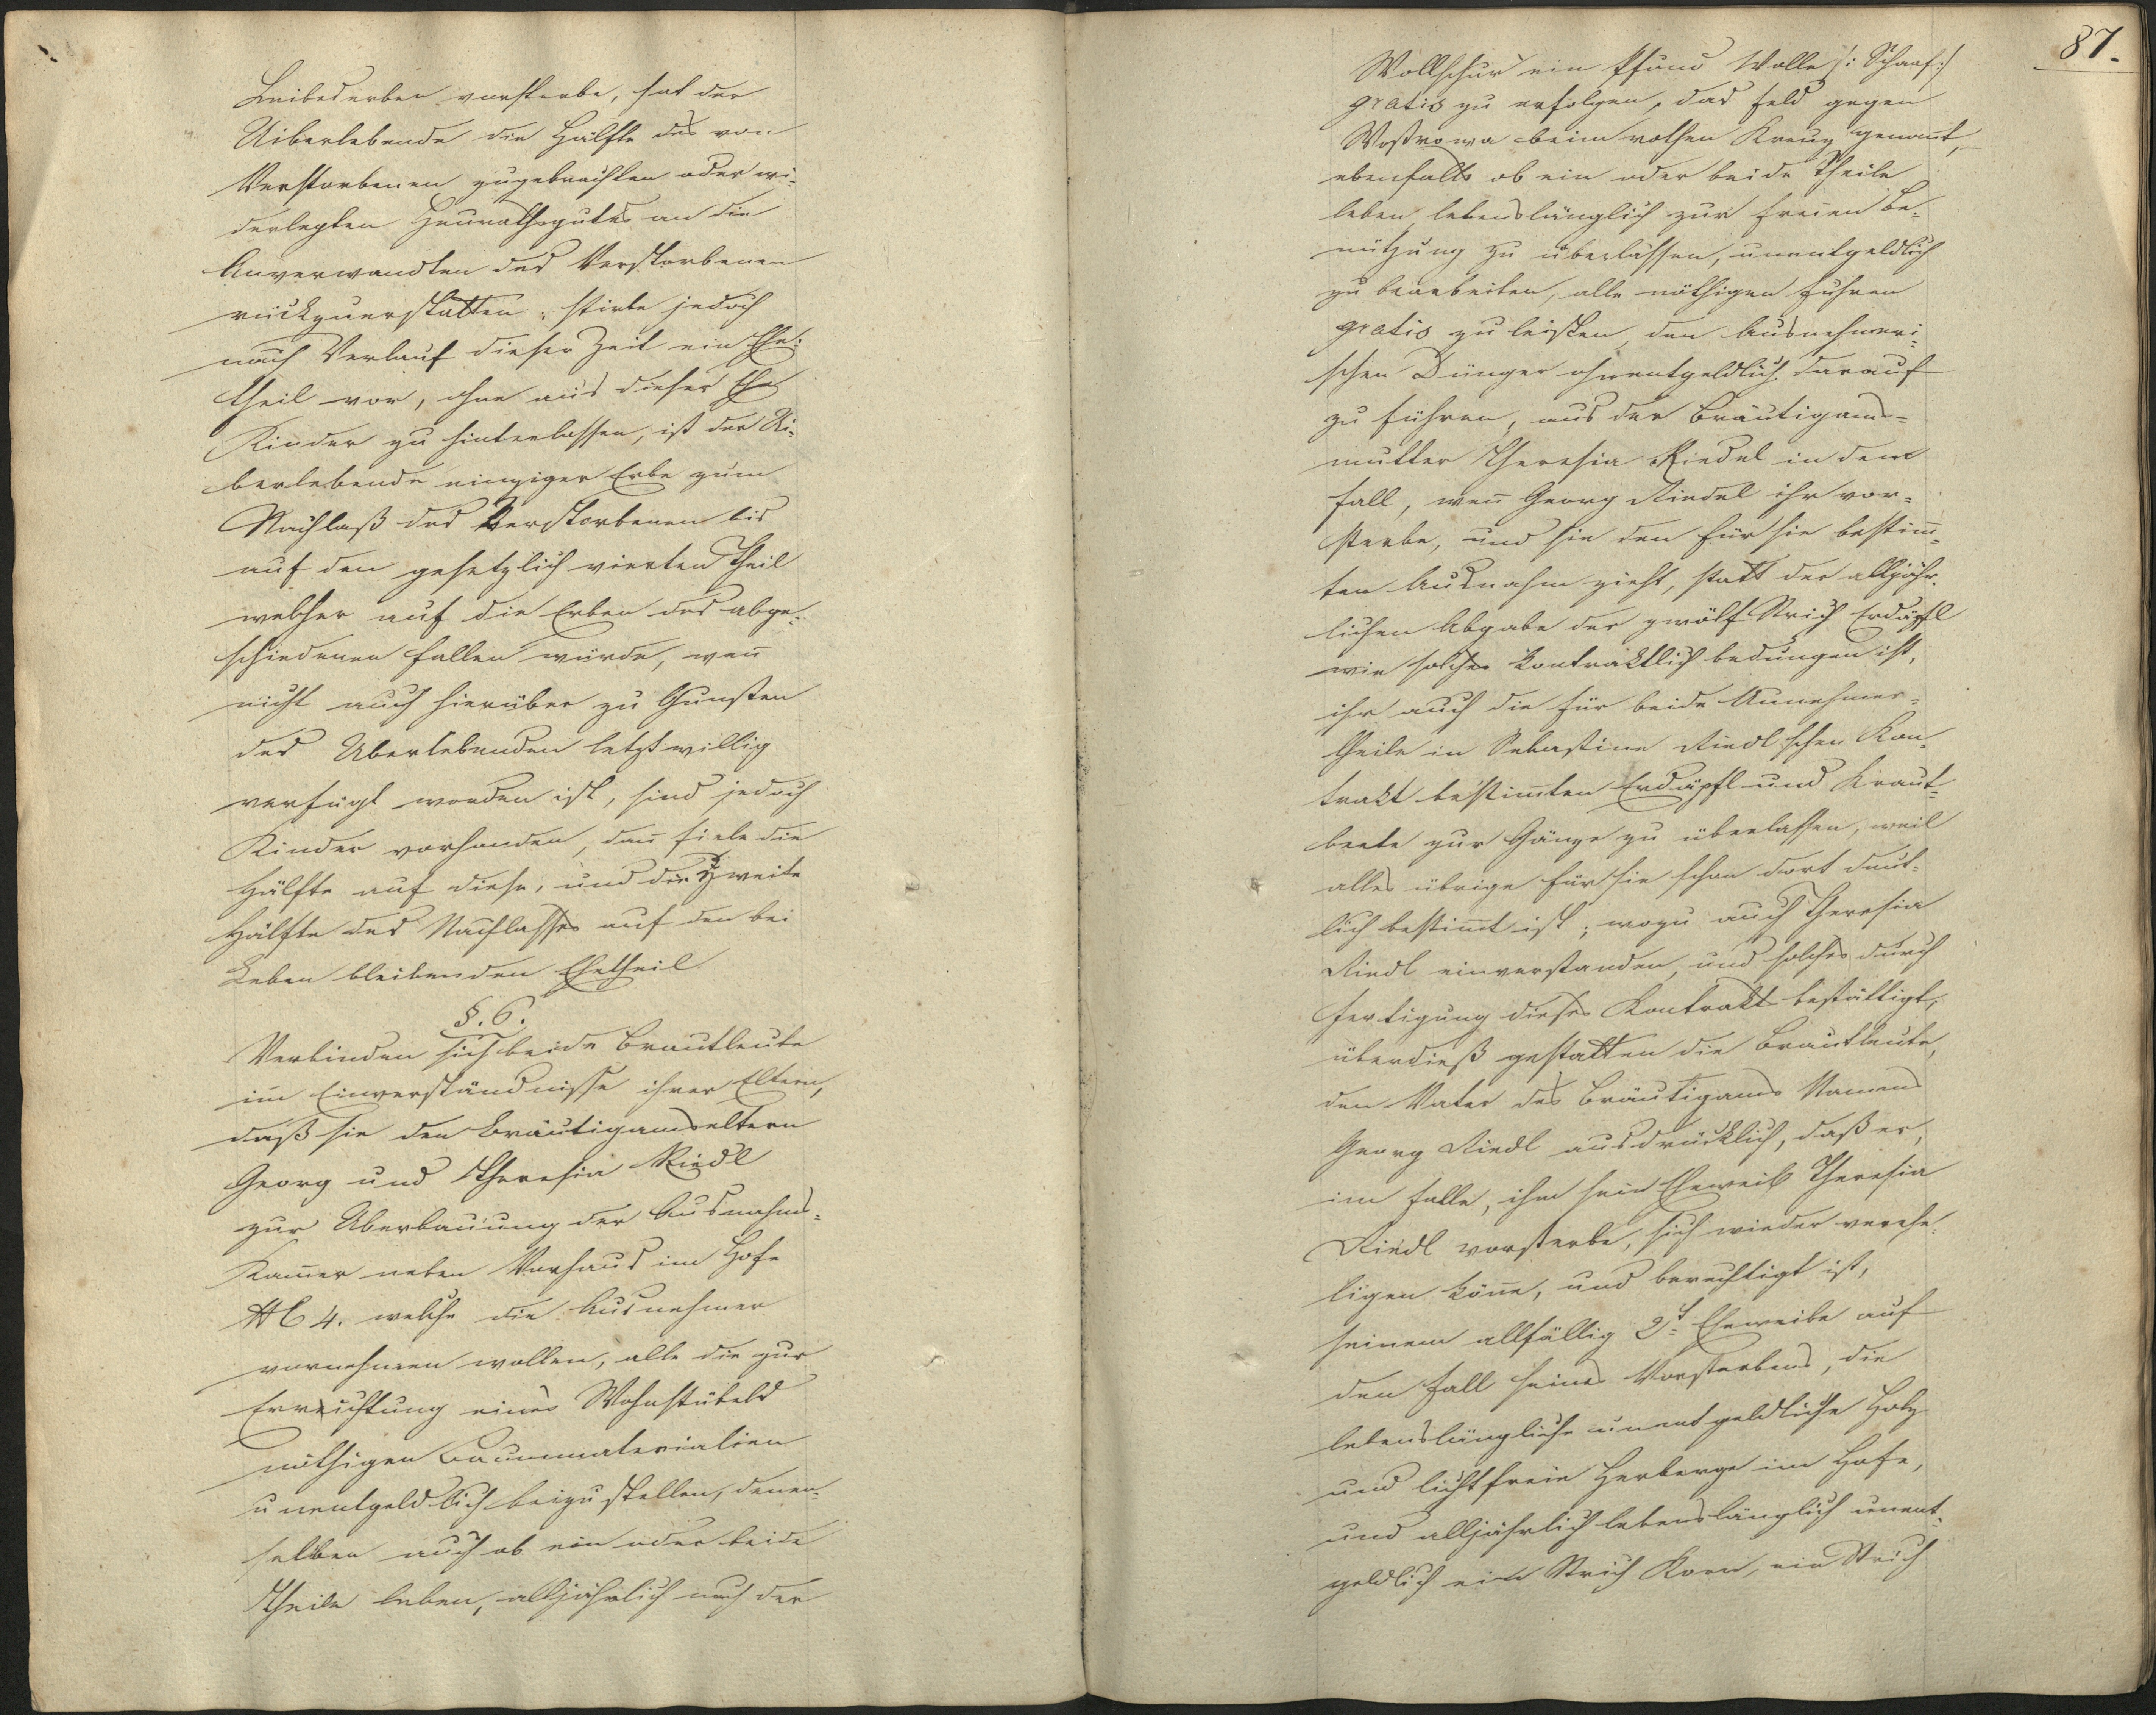 Leibeserben versterbe, hat der
Uiberlebende die Hälfte des von
Verstorbenen zugebrachten oder wi-
derlegten Heurathsgutes an die
Anverwandten des Verstorbenen
rückzuerstatten; stirbt jedoch
nach Verlauf dieser Zeit ein Ehe-
theil vor, ohne aus dieser Ehe
Kinder zu hinterlassen, ist der Ui-
berlebende einziger Erbe zum
Nachlaß des Verstorbenen bis
auf den gesetzlich vierten Theil
welcher auf die Erben des abge-
schiedenen fallen würde, wen̄
nicht auch hierüber zu Gunsten
des Uberlebenden letztwillig
verfügt worden ist, sind jedoch
Kinder vorhanden, dan̄ fiele die
Hälfte auf diese, und die zweite
Hälfte des Nachlasses auf den bei
Leben bleibenden Ehetheil
§. 6.
Verbinden sich beide Brautleute
im Einverständnisse ihrer Eltern,
daß sie den Bräutigamseltern
Georg und Theresia Riedl
zur Uberbauung der Ausnahms-
Kam̄er neben Vorhaus im Hofe
NC 4. welche die Ausnehmer
vornehmen wollen, alle die zur
Erreichtung eines Wohnstübels
nöthigen Baumaterialien
unentgeldlich beizustellen, denen-
selben auch ob ein oder beide
Theile leben, alljährlich nach der
87.
Wollschur ein Pfund Wolle /: Schaaf :/
gratis zu erfolgen, das Feld gegen
Wostrowa beim rothen Kreuz genan̄t,
ebenfalls ob ein oder beide Theile
leben lebenslänglich zur freien Be-
nützung zu überlassen, unentgeldlich
zu bearbeiten, alle nöthigen Fuhren
gratis zu leisten, den Ausnehmeri-
schen Dünger ohnentgeldlich darauf
zu führen, aus der Bräutigams-
mutter Theresia Riedel in dem
Fall, wen̄ Georg Riedel ihr vor-
sterbe, und sie den für sie bestim̄-
ten Ausnahm zieht, statt der alljähr-
lichen Abgabe der zwölf Strich Erdäpfl
wie solche kontraktlich bedungen ist,
ihr auch die für beide Ausnehmer-
theile in Sebastian Riedl'schen Kon-
trakt bestim̄ten Erdäpfl- und Kraut-
beete zur Gänze zu überlassen, weil
alles übrige für sie schon dort deut-
lich bestim̄t ist; wozu auch Theresia
Riedl einverstanden, und solches durch
Fertigung dieses Kontrakt bestättigt,
überdieß gestatten die Brautleute,
dem Vater des Bräutigams Namens
Georg Riedl ausdrücklich, daß er,
im Falle, ihm sein Eheweib Theresia
Riedl vorsterbe, sich wieder verehe-
ligen kön̄e, und berechtigt ist,
seinem allfällig 2t Eheweibe auf
den Fall seines Vorsterbens, die
lebenslängliche unentgeldliche Holz
und lichtfreie Herberge im Hofe,
und alljährlich lebenslänglich unent-
geldlich ein Strich Korn, ein Strich